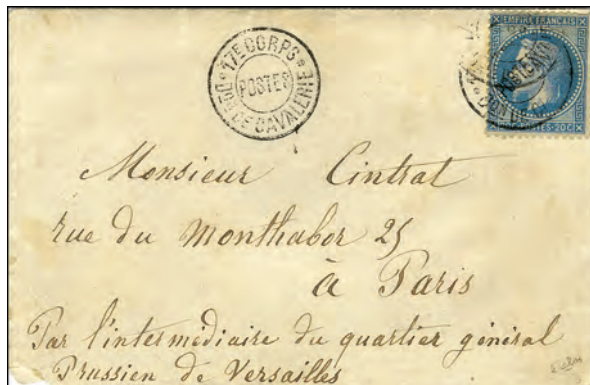 17E CORPS
POSTES
DON DE CAVALERIE
EMPIRE FRANÇAIS
POSTES
20C
Monsieur Cintrat
rue du Monthabor 25
à Paris
Par l'intermédiaire du quartier général
Prussien de Versailles